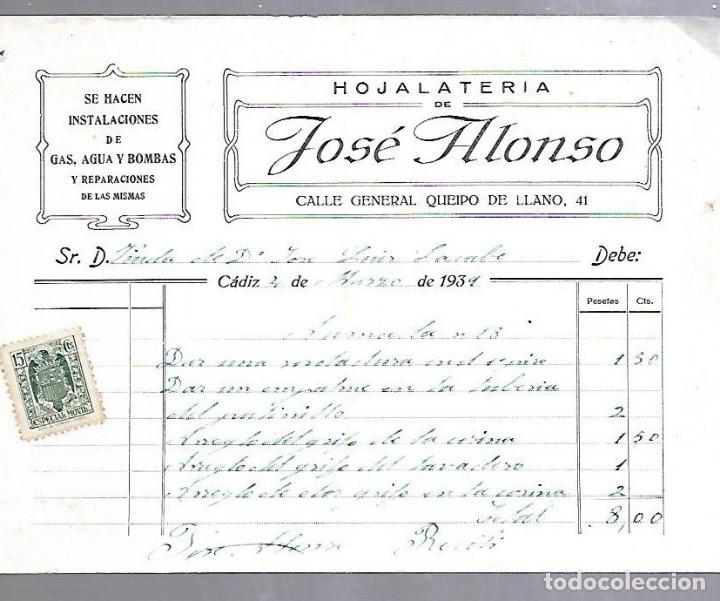 SE HACEN
INSTALACIONES
DE
GAS, AGUA Y BOMBAS
Y REPARACIONES
DE LAS MISMAS
HOJALATERIA
DE
José Alonso
CALLE GENERAL QUEIPO DE LLANO, 41
Sr. D. Viuda de Dn José Luis Debe:
Cádiz 2 de Marzo de 1939
Pesetas Cts.
n 13
Dar una soldadura en el 1 50
Dar un empalme en la tuberia
del patinillo 2
Arreglo del grifo de la cocina 1 50
Arreglo del grifo del lavadero 1
Arreglo de otro grifo en la cocina 2
Total 8,00
José Alonso Recibí
15 Cts
ESPECIAL MOVIL
todocoleccion